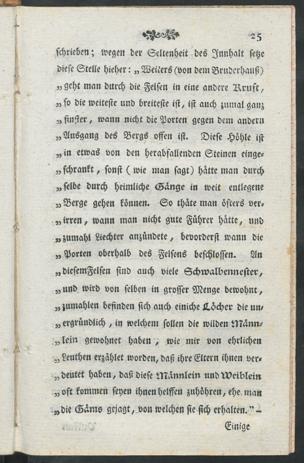 25
schrieben; wegen der Seltenheit des Innhalt setze
diese Stelle hieher: „Weiters (von dem Bruderhauß)
„geht man durch die Felsen in eine andere Kruft,
„so die weiteste und breiteste ist, ist auch zumal ganz
„finster, wann nicht die Porten gegen dem andern
„Ausgang des Bergs offen ist. Diese Höhle ist
„in etwas von den herabfallenden Steinen einge-
„schrankt, sonst (wie man sagt) hätte man durch
„selbe durch heimliche Gänge in weit entlegene
„Berge gehen können. So thäte man öfters ver-
„irren, wann man nicht gute Führer hätte, und
„zumahl Liechter anzündete, bevorderst wann die
„Porten oberhalb des Felsens beschlossen. An
„diesem Felsen sind auch viele Schwalbennester,
„und wird von selben in grosser Menge bewohnt,
„zumahlen befinden sich auch einiche Löcher die un-
„ergründlich, in welchem sollen die wilden Männ-
„lein gewohnet haben, wie mir von ehrlichen
„Leuthen erzählet worden, daß ihre Eltern ihnen ver-
„deutet haben, daß diese Männlein und Weiblein
„oft kommen seyen ihnen helffen zuhöhren, ehe man
„die Gäms gejagt, von welchen sie sich erhalten.“ –
Einige